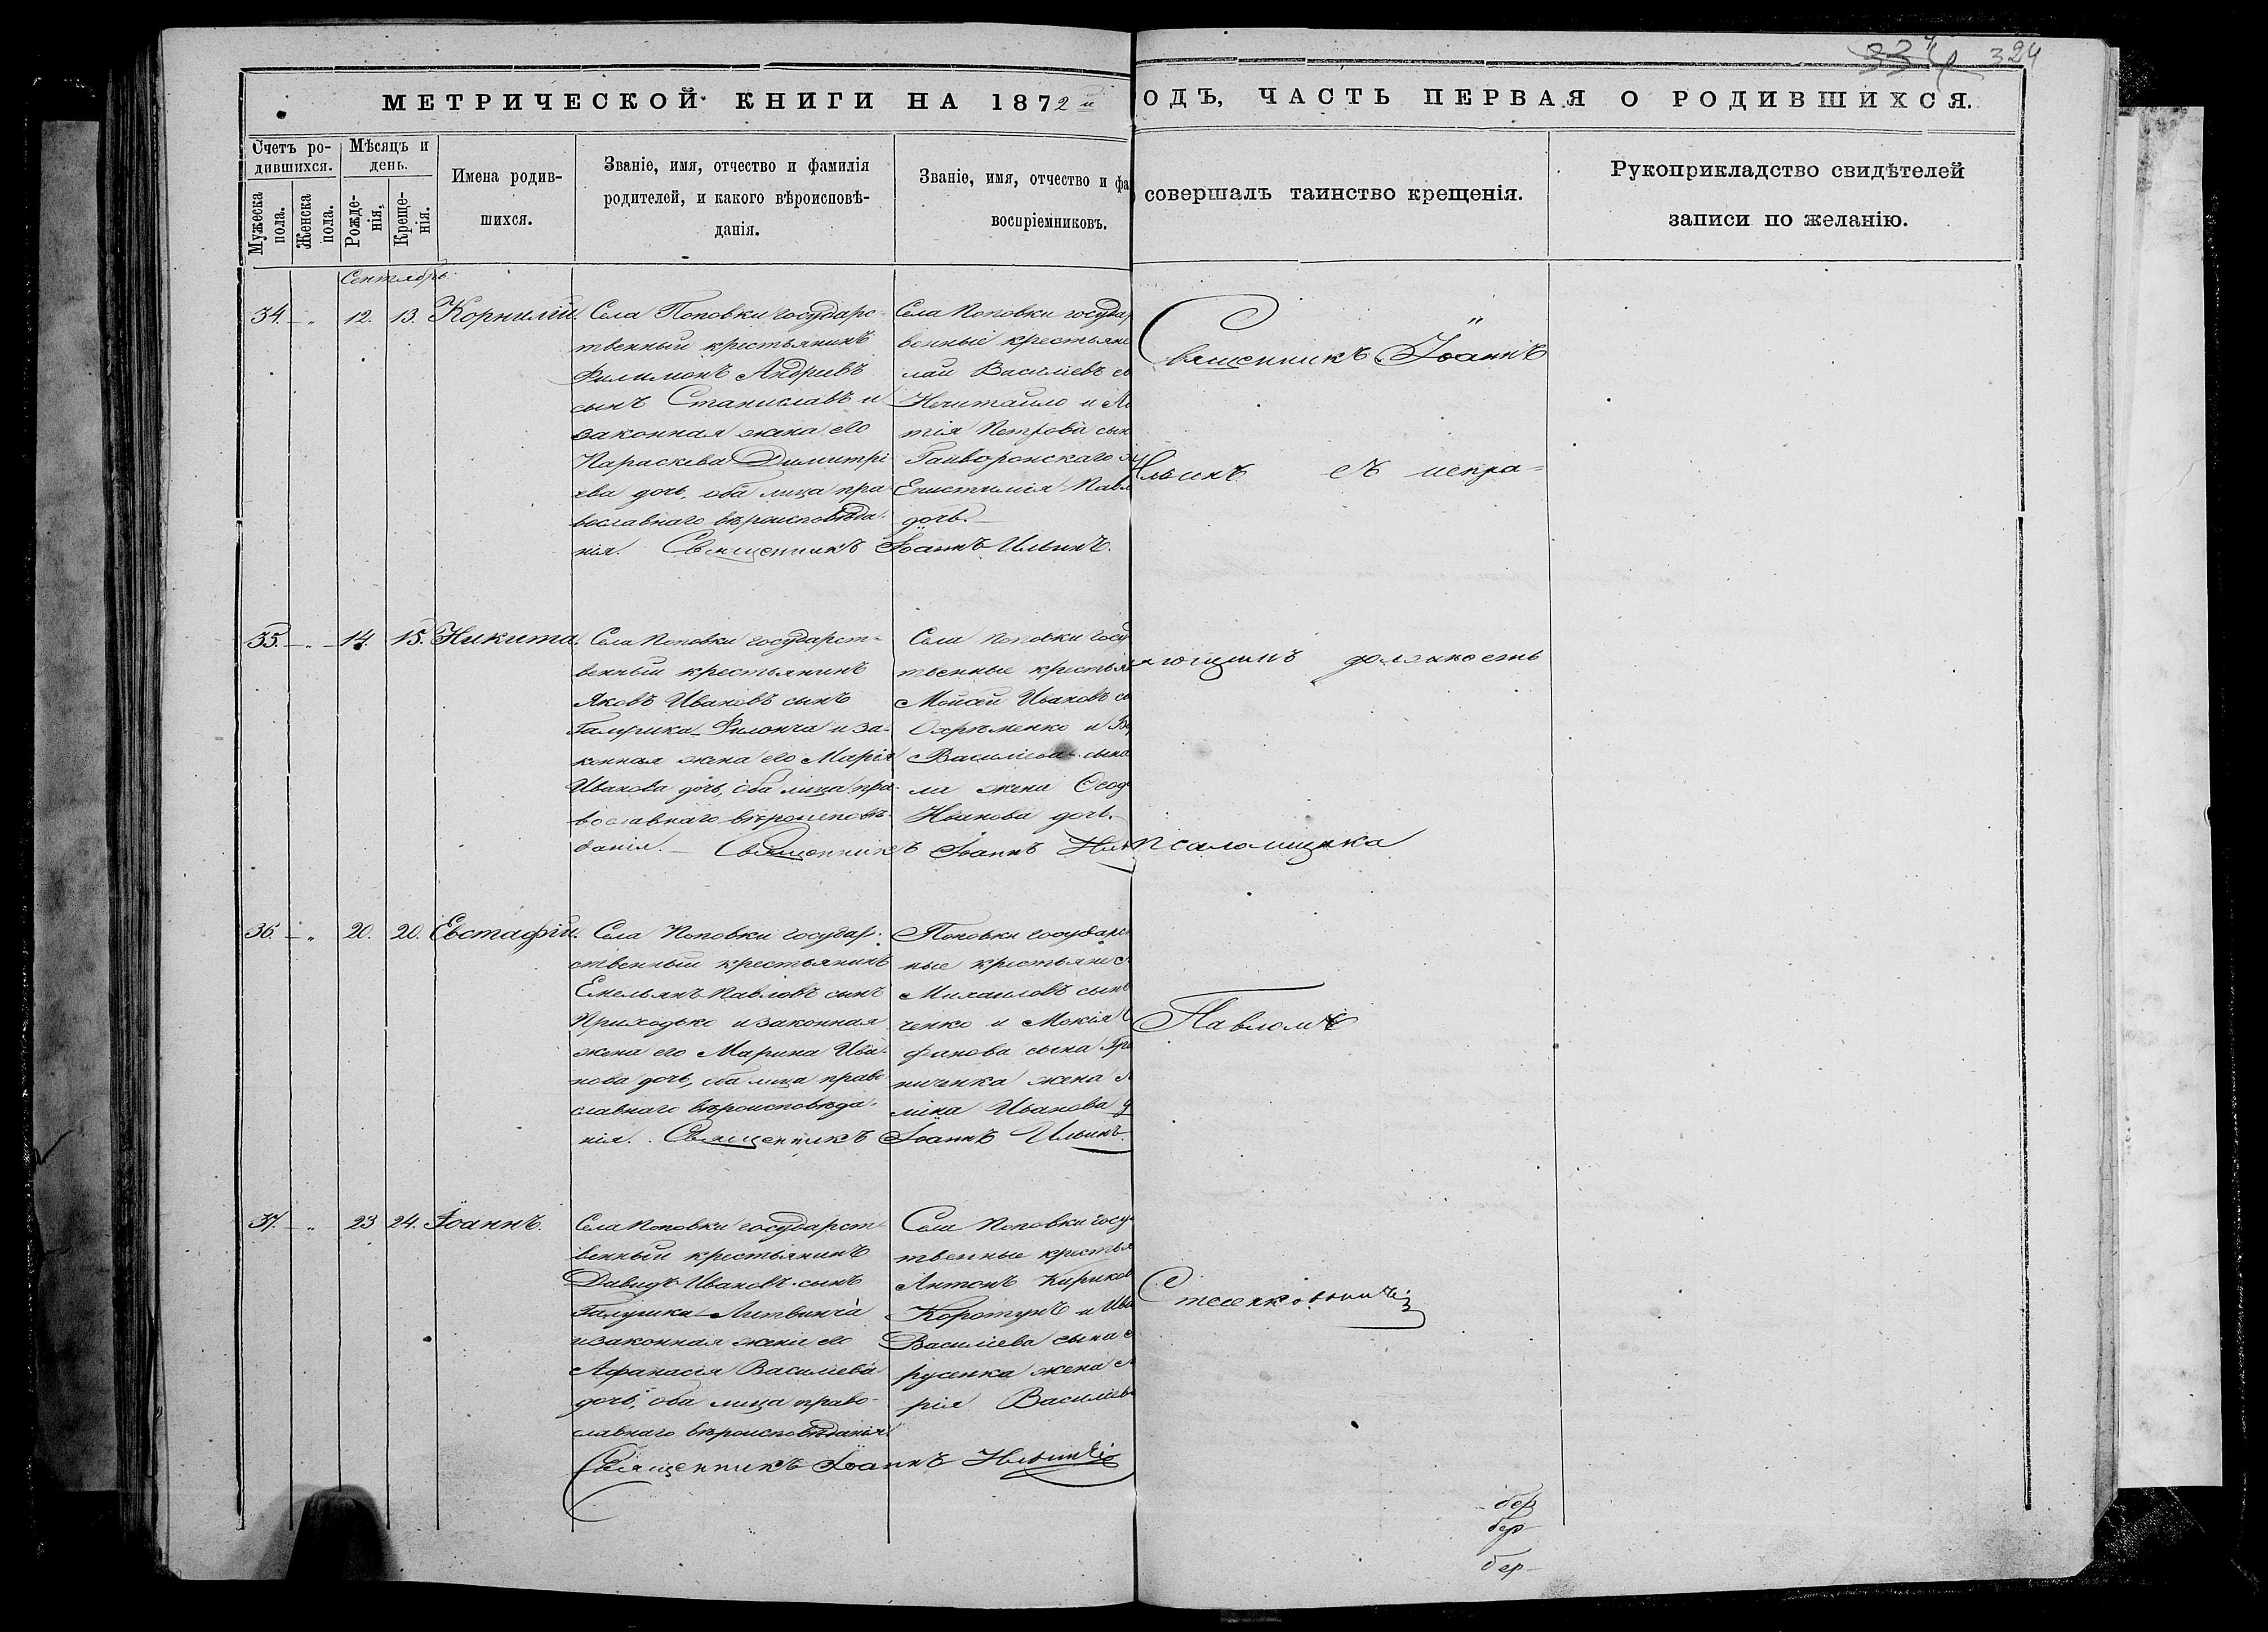 324
МЕТРИЧЕСКОЙ КНИГИ НА 1872 й
ОДЪ, ЧАСТЬ ПЕРВАЯ О РОДИВШИХСЯ.
Счетъ ро-
дившихся.
Мѣсяцъ и
день.
Мужеска
пола.
Женска
пола.
Рожде-
нія.
Креще-
нія.
Имена родив-
шихся.
Званіе, имя, отчество и фамилія
родителей, и какого вѣроисповѣ-
данія.
Званіе, имя, отчество и фа
воспріемниковъ.
совершалъ таинство крещенія.
Рукоприкладство свидѣтелей
записи по желанію.
Сентябрь.
34. 12. 13. Корнилій.
Села Поповки государс-
твенный крестьянинъ
Филимонъ Андріевъ
сынъ Станиславъ и
законная жена его
Параскева Димитрі
ева дочь, оба лица пра
вославнаго вѣроисповѣда-
нія. Священникъ Іоаннъ Ильинъ.
Села Поповки госуда
венные крестьяне
лай Василіевъ
Нечитайло и
тія Петрова сын
Гайворонскаго
Епистимія Павл
дочь.
35. 14. 15. Никита.
Села Поповки государст-
венный крестьянинъ
Яковъ Ивановъ сынъ
Галушка Филонча и за-
конная жена его Марія
Иванова дочь, оба лица пра-
вославнаго вѣроисповѣ-
данія. Священникъ Іоаннъ
Села Поповки госу
твенные крестья
Мойсей Ивановъ
Охрѣменко и
Василіева сына
ла жена Ѳеод
Иванова дочь.
36. 20. 20. Евстафій.
Села Поповки государ-
ственный крестьянинъ
Емельянъ Павловъ сынъ
Приходько и законная
жена его Марина Ива-
нова дочь, оба лица право
славнаго вѣроисповѣда-
нія. Священникъ Іоаннъ Ильинъ.
Поповки государс
ные крестьяне
Михаиловъ сынъ
ченко и Мокія
фанова сына
ниченка жена
ліка Иванова
37. 23 24. Іоаннъ.
Села Поповки государст-
венный крестьянинъ
Давидъ Ивановъ сынъ
Галушка Литвинча
и законная жена его
Афанасія Василіева
дочь, оба лица право-
славнаго вѣроисповѣданія.
Священникъ Іоаннъ Ильинъ
Села Поповки госу
твенные крестья
Антонъ Кириков
Коротунъ и Ива
Василіева сына
русенка жена
рія Василіев
Священникъ Іоаннъ
Ильинъ съ испра=
ляющимъ должность
псаломщика
Павломъ
бер
бер
бер